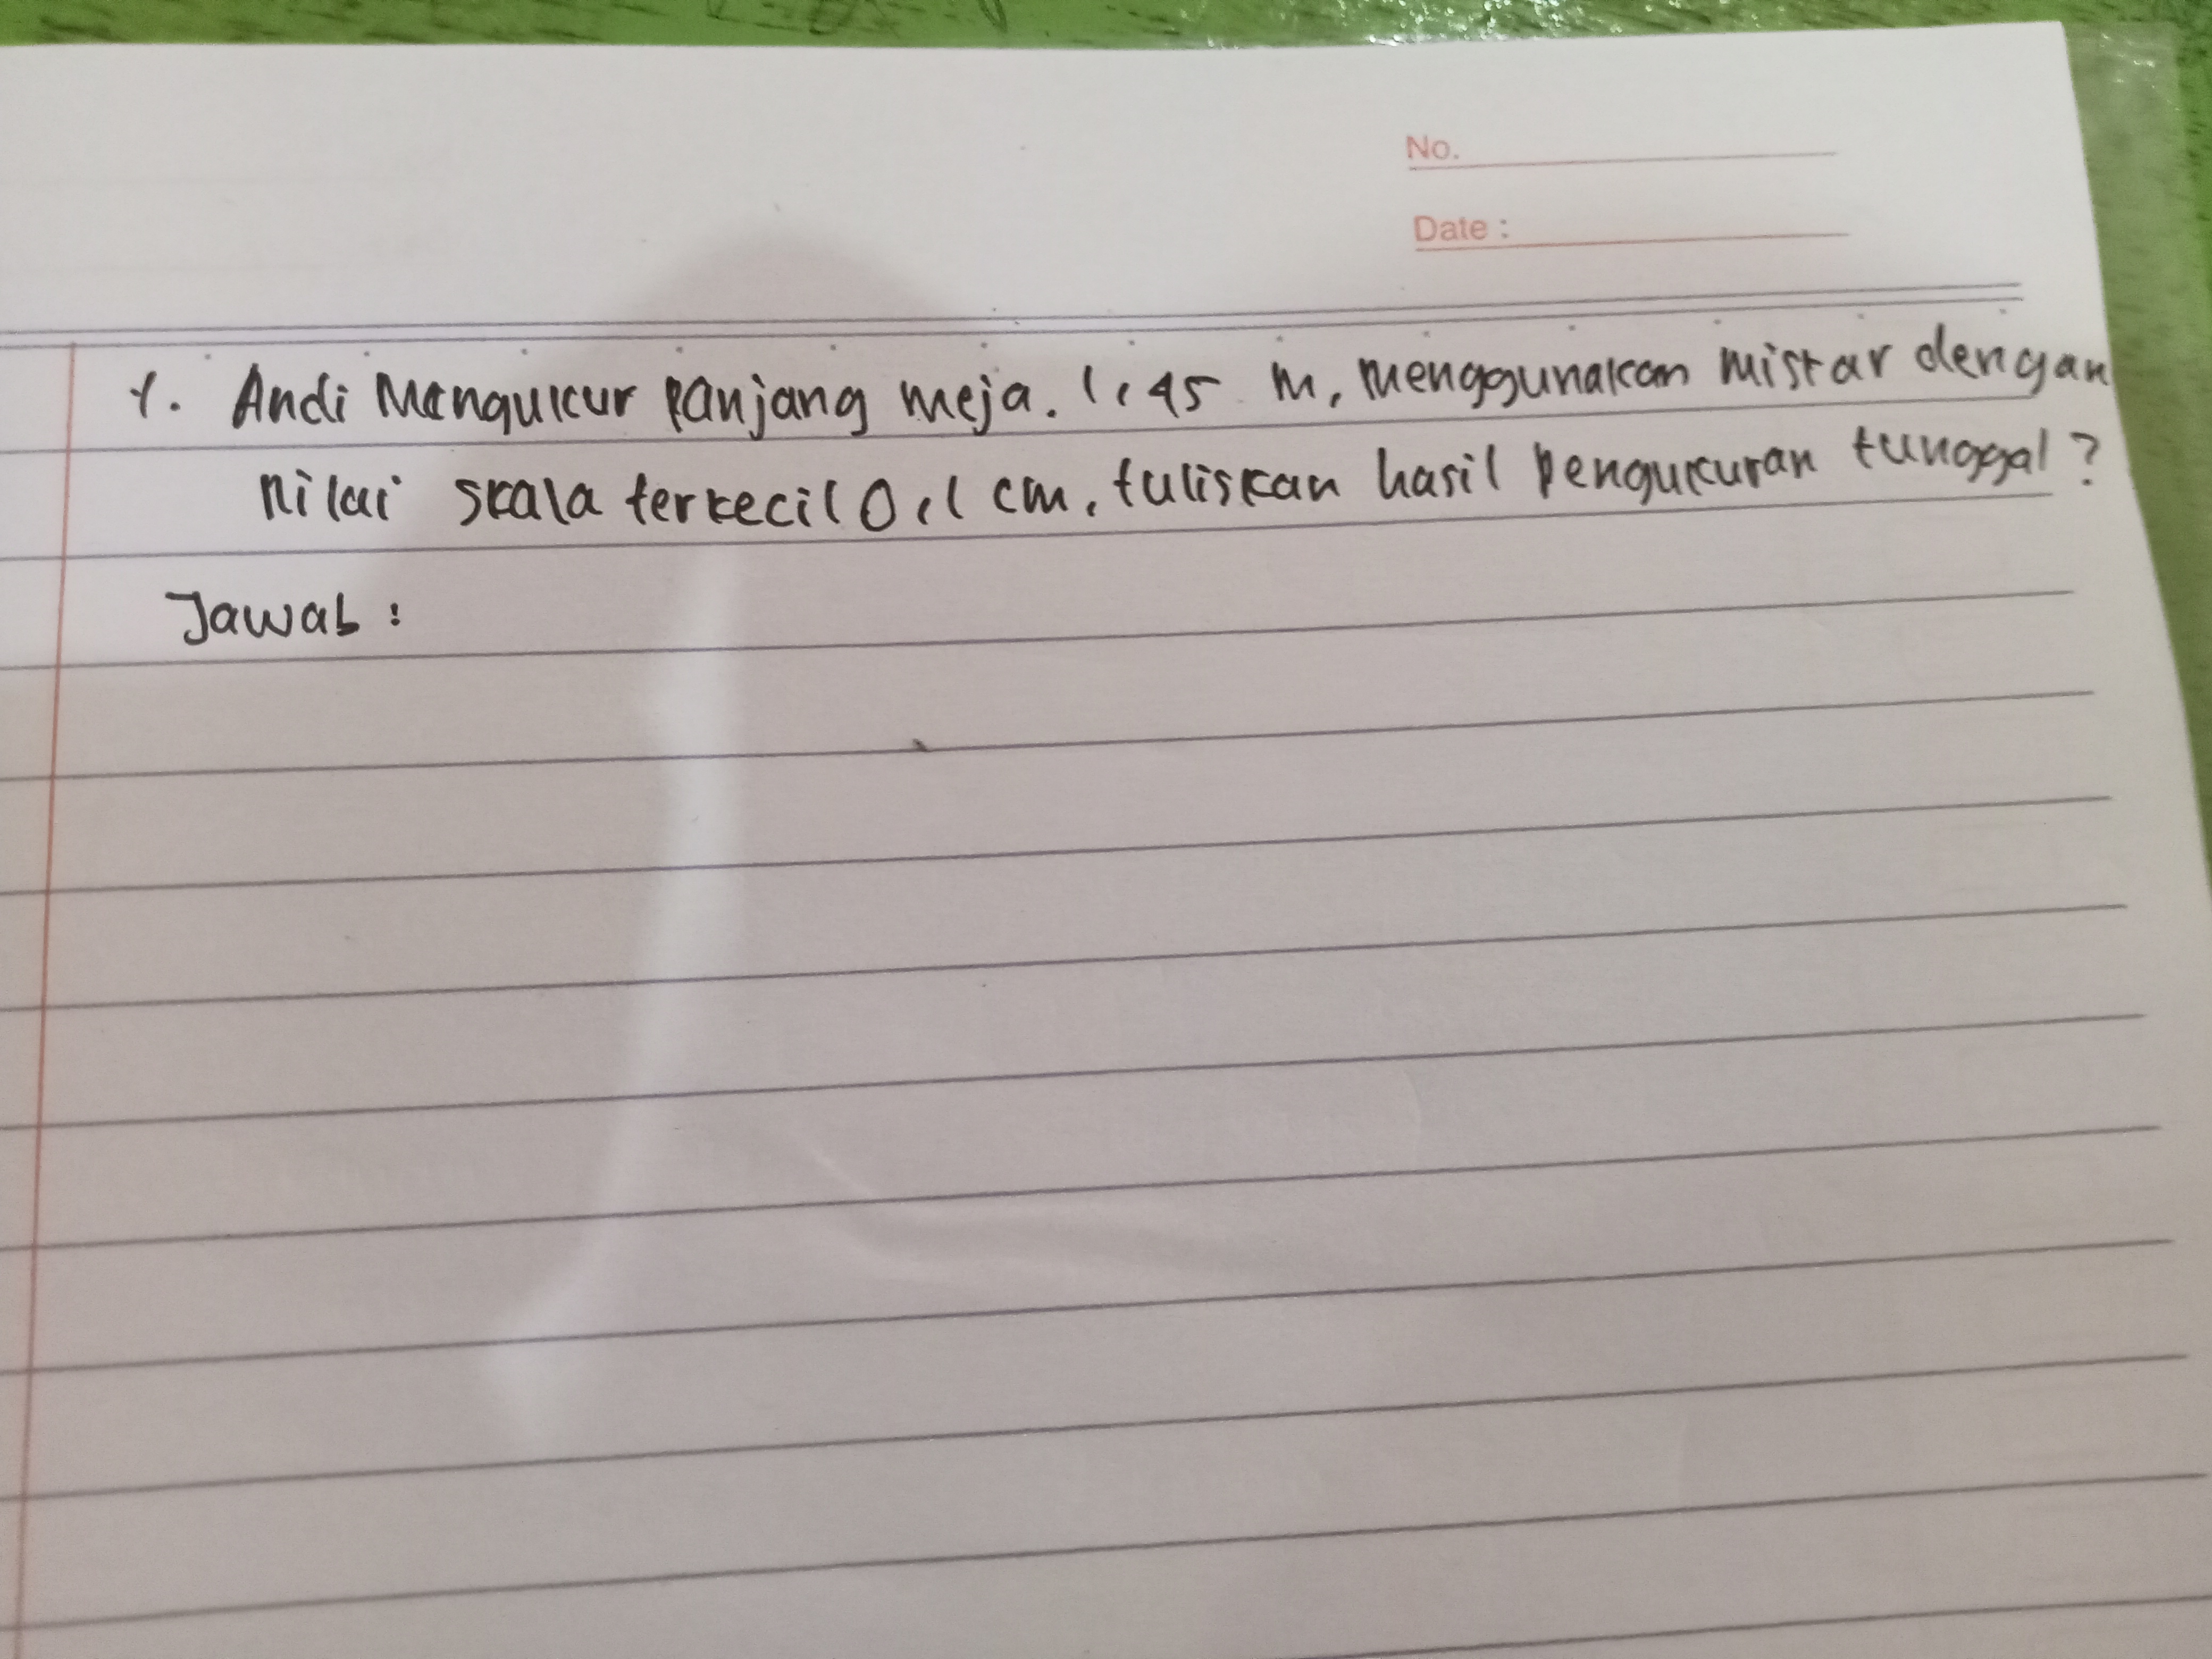 No.
Date :
1. Andi Mengukur panjang meja. 1,45 m, menggunakan mistar dengan
nilai skala terkecil 0,1 cm, tuliskan hasil pengukuran tunggal ?
Jawab :